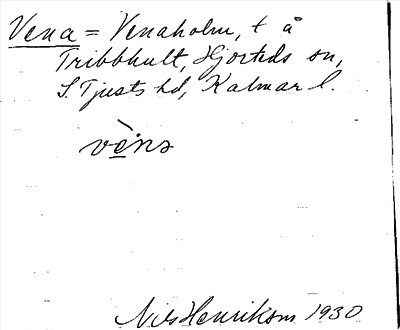 Vena = Venaholm, t å
Tribbhult, Hjorteds sn,
S. Tjusts hd, Kalmar l.
vè̱nɔ
Nils Henrikson 1930